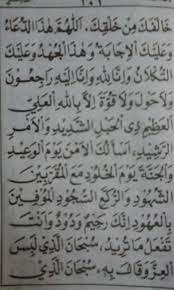 ١٠١
خَالَفَكَ مِنْ خَلْقِكَ. اَللّٰهُمَّ هٰذَا الدُّعَاءُ
وَعَلَيْكَ الْاِجَابَةُ وَهٰذَا الْجُهْدُ وَعَلَيْكَ
التُّكْلَانُ وَاِنَّا لِلّٰهِ وَاِنَّا اِلَيْهِ رَاجِعُوْنَ
وَلَاحَوْلَ وَلَا قُوَّةَ اِلَّا بِاللّٰهِ الْعَلِيِّ
الْعَظِيْمِ ذِى الْحَبْلِ الشَّدِيْدِ وَالْاَمْرِ
الرَّشِيْدِ، اَسْأَلُكَ الْاَمْنَ يَوْمَ الْوَعِيْدِ
وَالْجَنَّةَ يَوْمَ الْخُلُوْدِ مَعَ الْمُقَرَّبِيْنَ
الشُّهُوْدِ وَالرُّكَّعِ السُّجُوْدِ الْمُوْفِيْنَ
بِالْعُهُوْدِ اِنَّكَ رَحِيْمٌ وَدُوْدٌ وَاَنْتَ
تَفْعَلُ مَا تُرِيْدُ، سُبْحَانَ الَّذِيْ لَبِسَ
الْعِزَّ وَقَالَ بِهِ، سُبْحَانَ الَّذِيْ